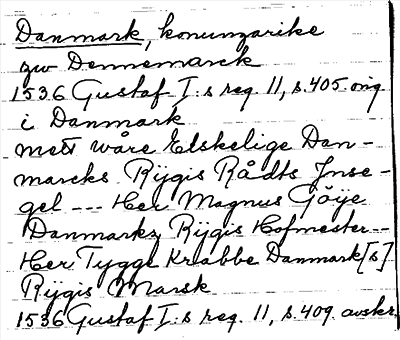 Danmark, konungarike
zw Dennemarck
1536 Gustaf I:s reg. 11, s. 405. orig.
i Danmark
mett wåre Elskelige Dan-
marcks Rijgis Rådts Inse-
gel --- Her Magnus Göije
Danmarks Rijgis Hofmester --
Her Tygge Krabbe Danmark[s]
Rijgis Marsk
1536 Gustaf I:s reg. 11, s. 409. avskr.